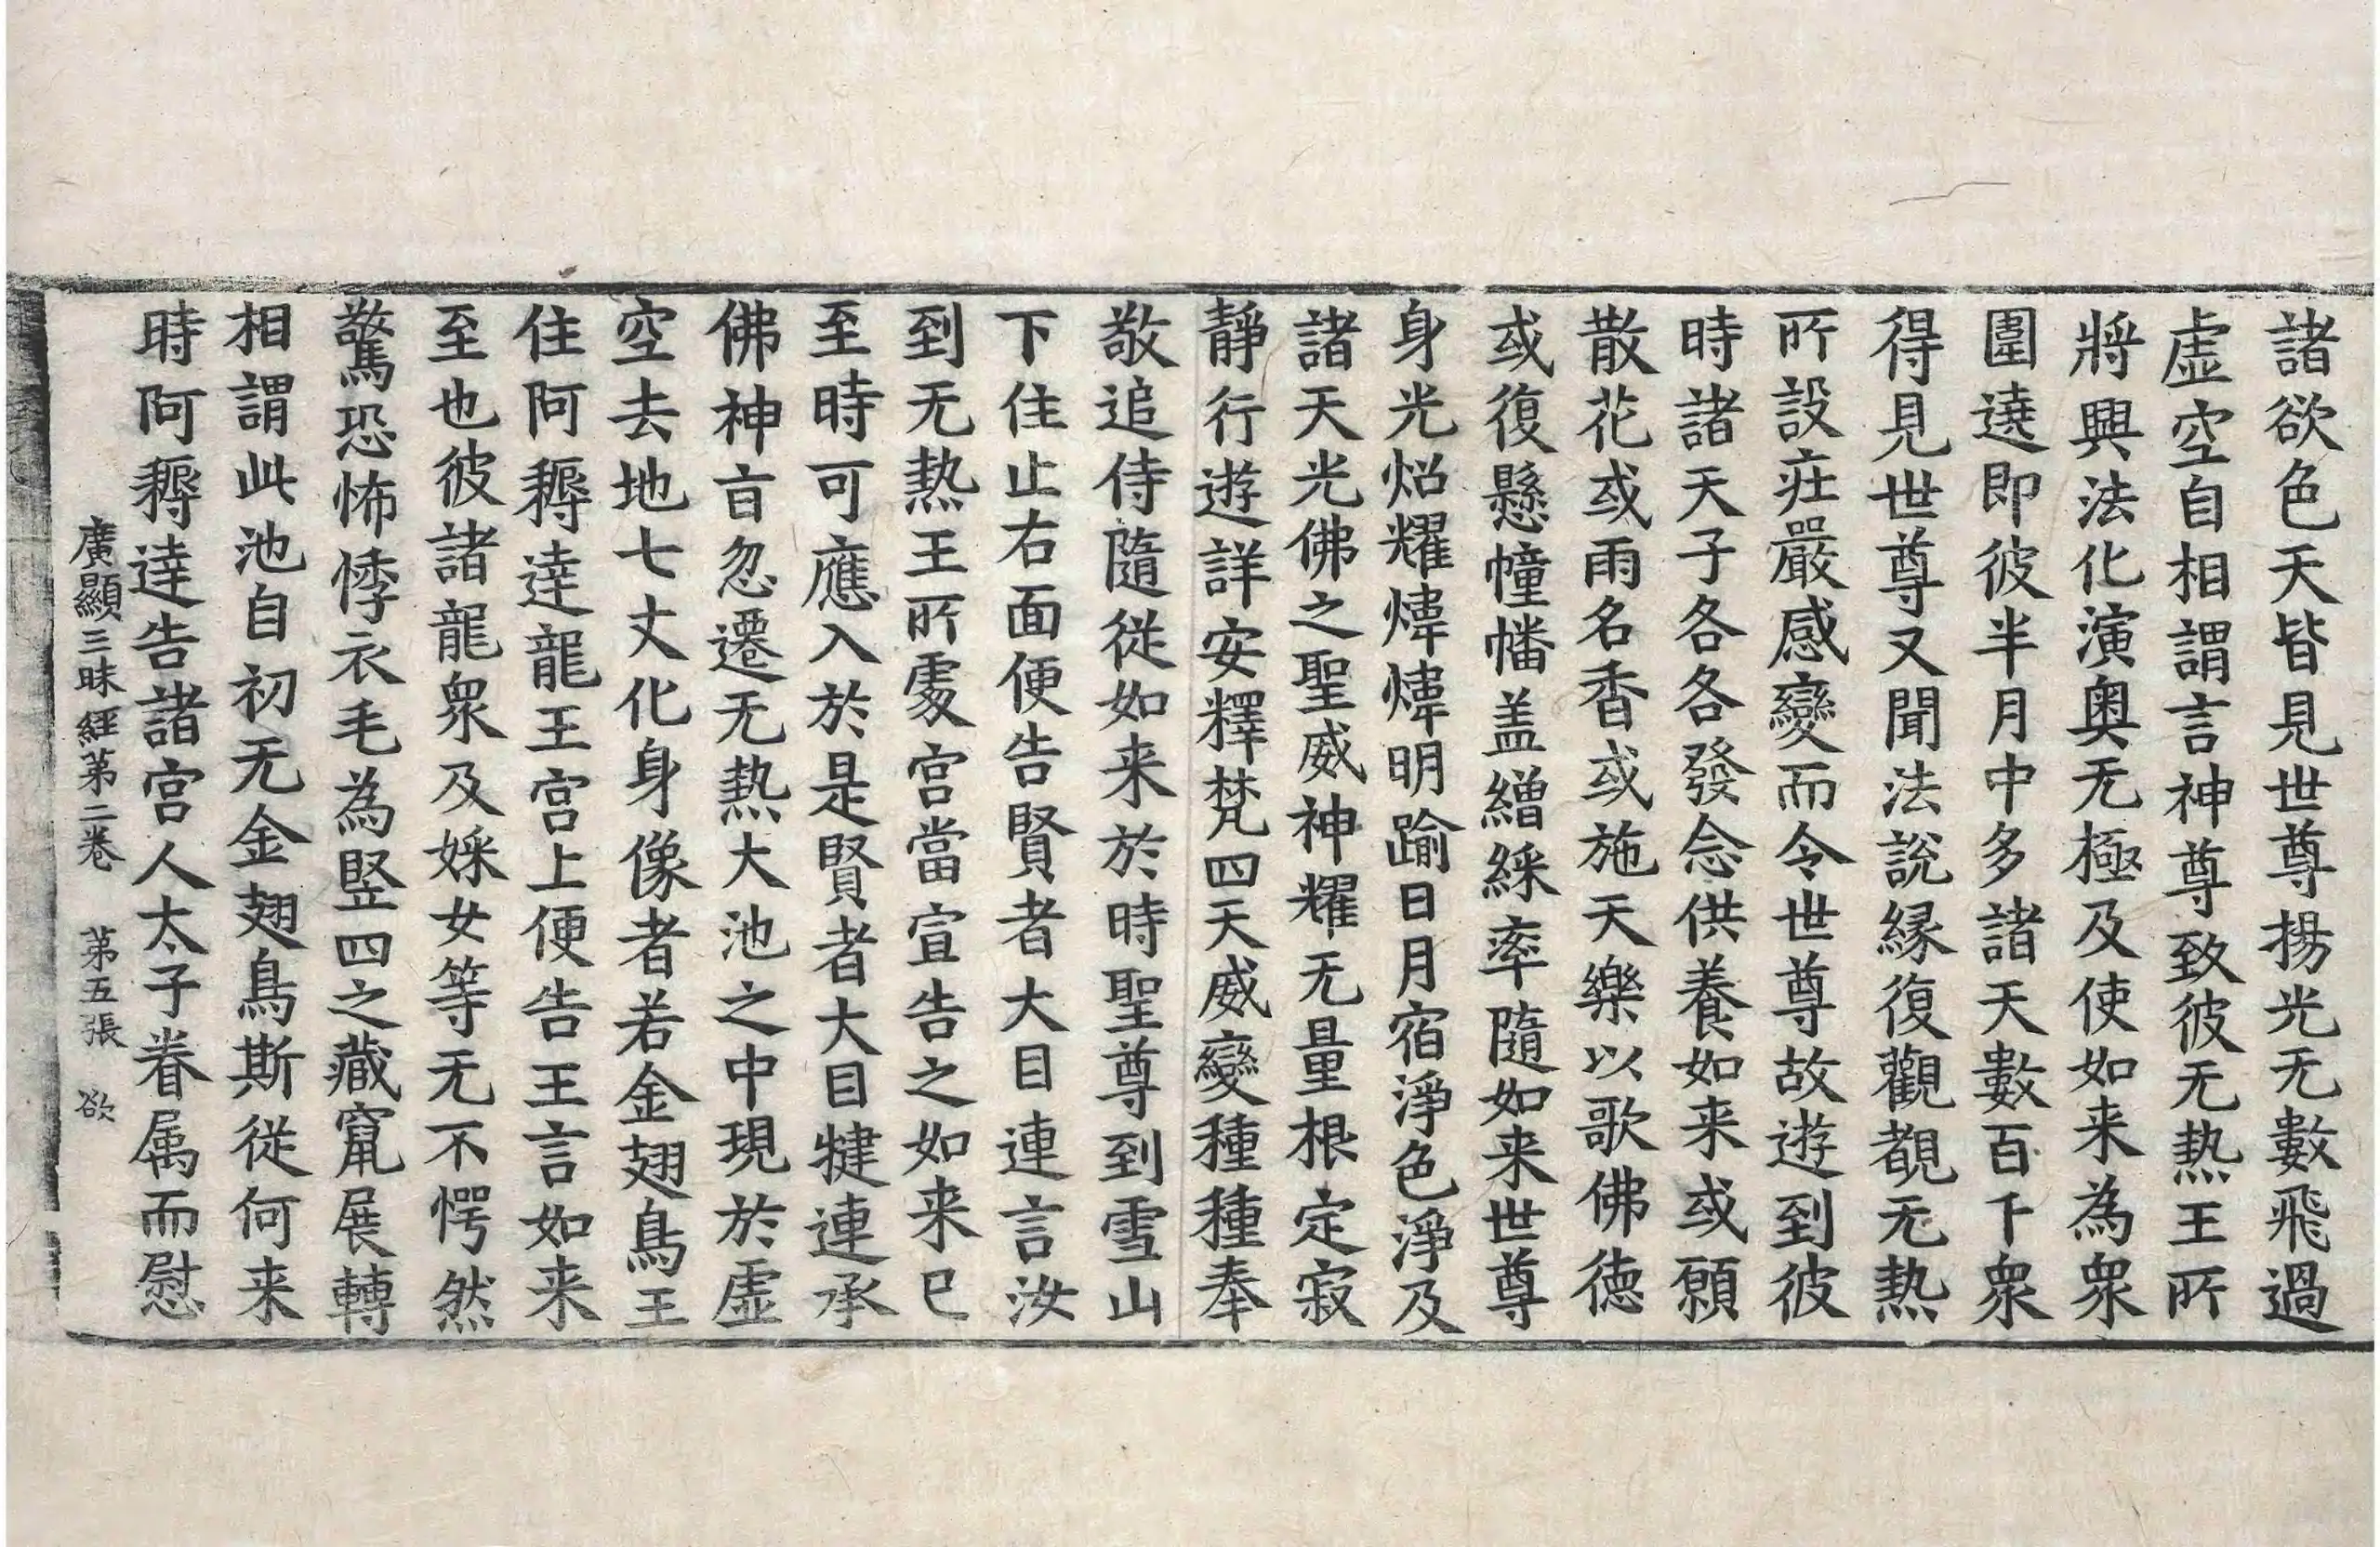 諸欲色天皆見世尊揚光无數飛過
虛空自相謂言神尊致彼无熱王所
將興法化演奧无極及使如来為衆
圍遶即彼半月中多諸天數百千衆
得見世尊又聞法說緣復觀覩无熱
所設莊嚴感變而令世尊故遊到彼
時諸天子各各發念供養如来或願
散花或雨名香或施天樂以歌佛德
或復懸幢幡盖繒綵率隨如来世尊
身光炤耀煒煒明踰日月宿淨色淨及
諸天光佛之聖威神耀无量根定寂
靜行遊詳安釋梵四天威變種種奉
敬追侍隨從如来於時聖尊到雪山
下住止右面便告賢者大目連言汝
到无熱王所處宮當宣告之如来已
至時可應入於是賢者大目犍連承
佛神旨忽遷无熱大池之中現於虛
空去地七丈化身像者若金翅鳥王
住阿耨達龍王宮上便告王言如来
至也彼諸龍衆及婇女等无不愕然
驚恐怖悸衣毛為竪四之藏竄展轉
相謂此池自初无金翅鳥斯從何来
時阿耨達告諸宮人太子眷属而慰
廣顯三昧經第二卷 第五張 欲